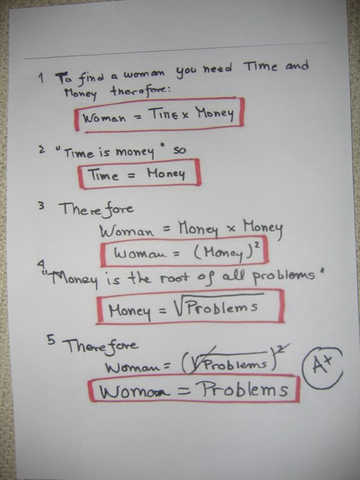 1 To find a woman you need Time and
Money therefore:
Woman = Time x Money
2 "Time is money" so
Time = Money
3 Therefore
Woman = Money x Money
Woman = (Money)²
4
"Money is the root of all problems"
Money = √Problems
5 Therefore
Woman = (√Problems)²
Woman = Problems
A+